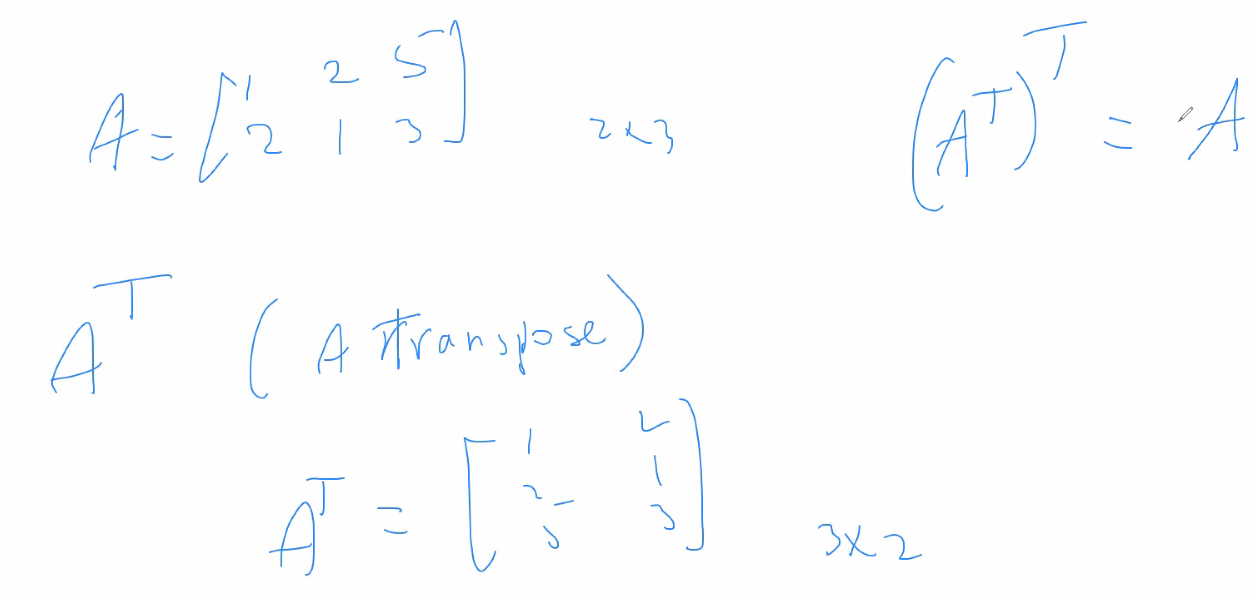 A = [1 2 5
2 1 3] 2x3
(A^T)^T = A
A^T (A Transpose)
A^T = [1 2
2 1
5 3] 3x2